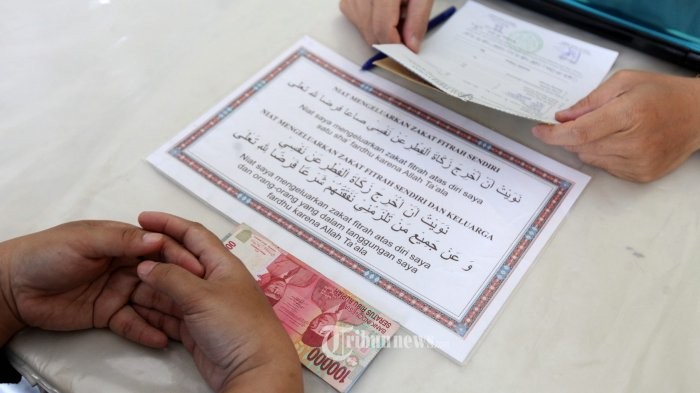 NIAT MENGELUARKAN ZAKAT FITRAH SENDIRI
نَوَيْتُ اَنْ اُخْرِجَ زَكَاةَ الْفِطْرِ عَنْ نَفْسِىْ صَاعًا فَرْضًا لله تَعَلَى
Niat saya mengeluarkan zakat fitrah atas diri saya
satu sha' fardhu karena Allah Ta'ala
NIAT MENGELUARKAN ZAKAT FITRAH SENDIRI DAN KELUARGA
نَوَيْتُ اَنْ اُخْرِجَ زَكَاةَ الْفِطْرِ عَنْ نَفْسِىْ
وَ عَنْ جَمِيْعِ مَنْ تَلْزَمُنِىْ نَفَقَتُهُمْ شَرْعًا فَرْضًا لله تَعَلَى
Niat saya mengeluarkan zakat fitrah atas diri saya
dan orang-orang yang dalam tanggungan saya
fardhu karena Allah Ta'ala
SERATUS RIBU
100000
Tribunnews